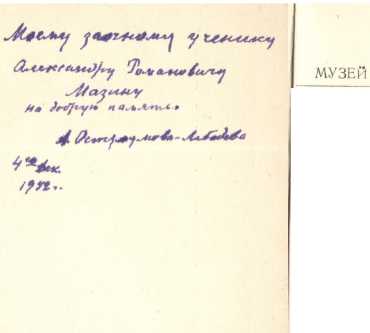 Моему заочному ученику
Александру Романовичу
Мазину
на добрую память.
А. Остроумова-Лебедева
4ое дек.
1952 г.
МУЗЕЙ